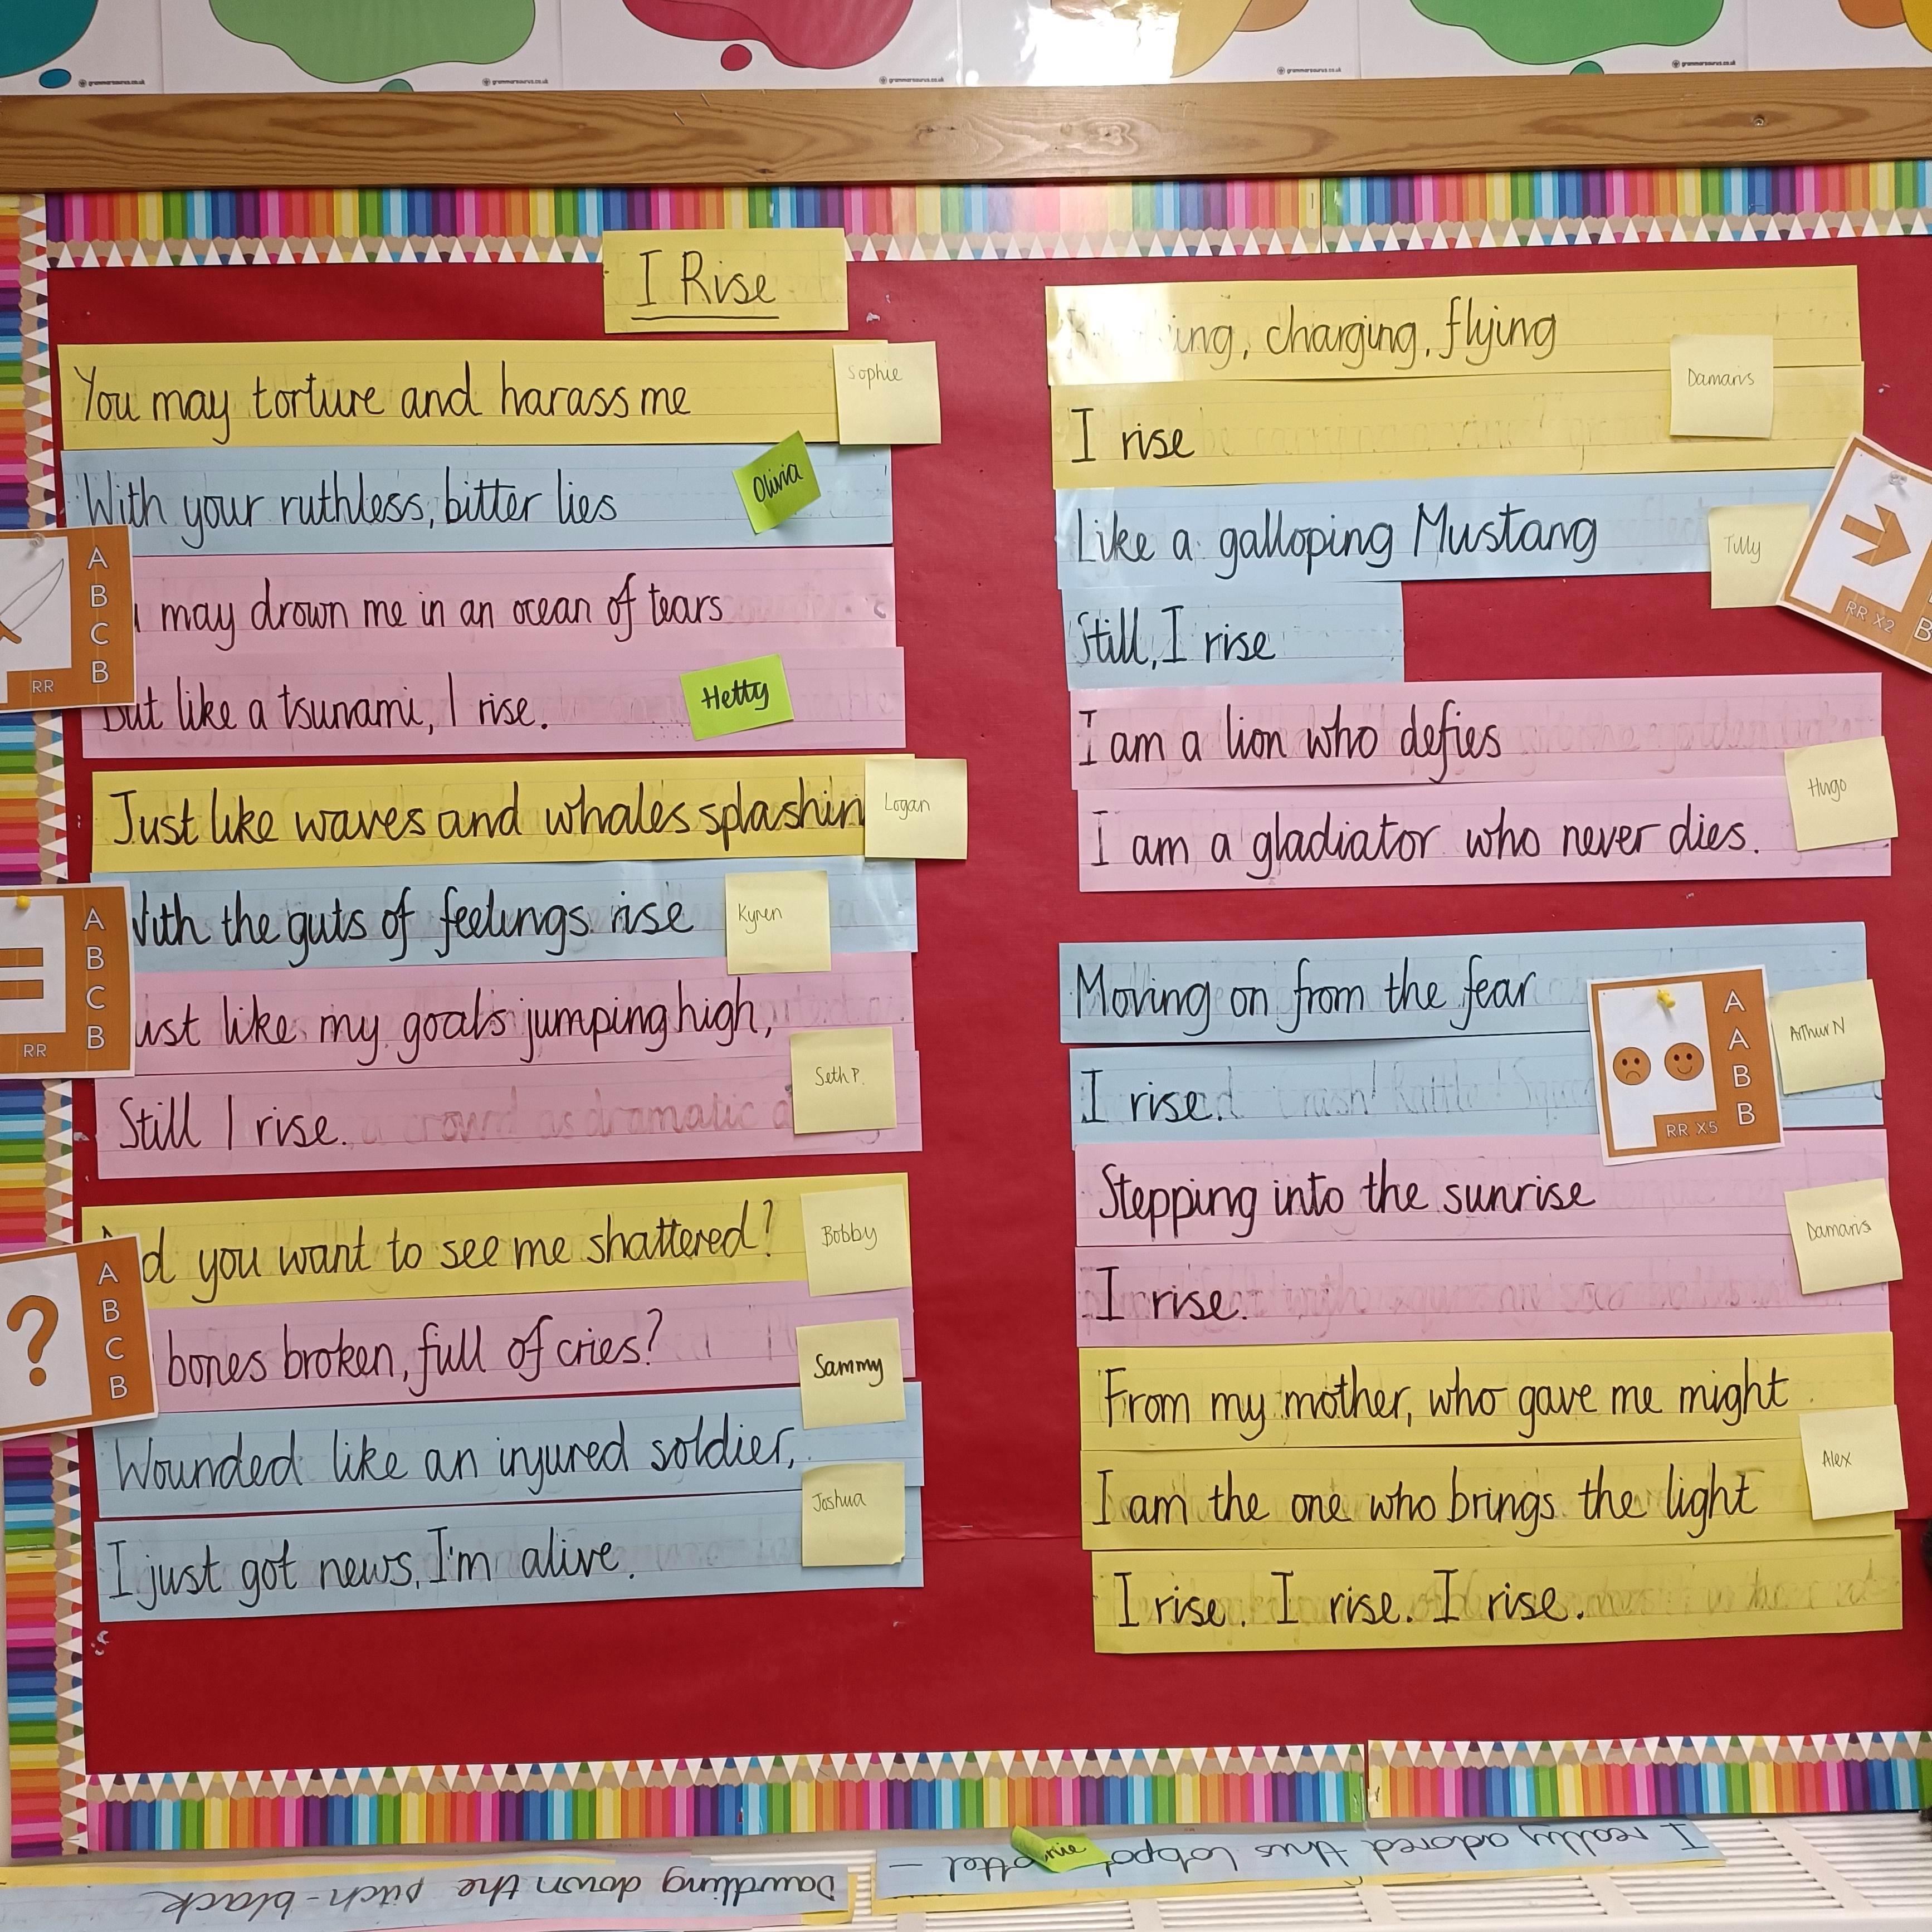 grammarsaurus.co.uk
grammarsaurus.co.uk
grammarsaurus.co.uk
grammarsaurus.co.uk
grammarsaurus.co.uk
I Rise
You may torture and harass me
Sophie
With your ruthless, bitter lies
Olivia
may drown me in an ocean of tears
But like a tsunami, I rise.
Hetty
A
B
C
B
RR
Just like waves and whales splashin
Logan
With the guts of feelings rise
Kyren
ust like my goals jumping high,
Still I rise.
Seth P.
A
B
C
B
RR
d you want to see me shattered?
Bobby
bones broken, full of cries?
Sammy
Wounded like an injured soldier,
I just got news, I'm alive.
Joshua
A
B
C
B
ing, charging, flying
I rise
Damaris
Like a galloping Mustang
Tilly
Still, I rise
RR X2
B
I am a lion who defies
I am a gladiator who never dies.
Hugo
Moving on from the fear
I rise.
Arthur N
A
A
B
B
RR X5
Stepping into the sunrise
I rise.
Damaris
From my mother, who gave me might
I am the one who brings the light
I rise. I rise. I rise.
Alex
I really adored this
Dawdling down the pitch-black